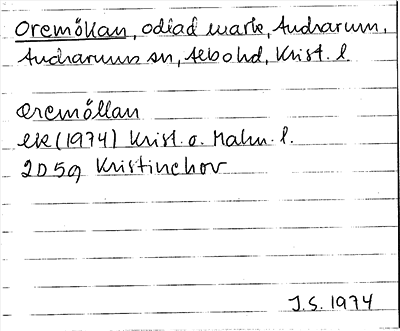 Oremöllan, odlad mark, Andrarum,
Andrarums sn, Albo hd, Krist. l.
Oremöllan
ek (1974) Krist. o. Malm. l.
2D 5g Kristinehov
J.S. 1974